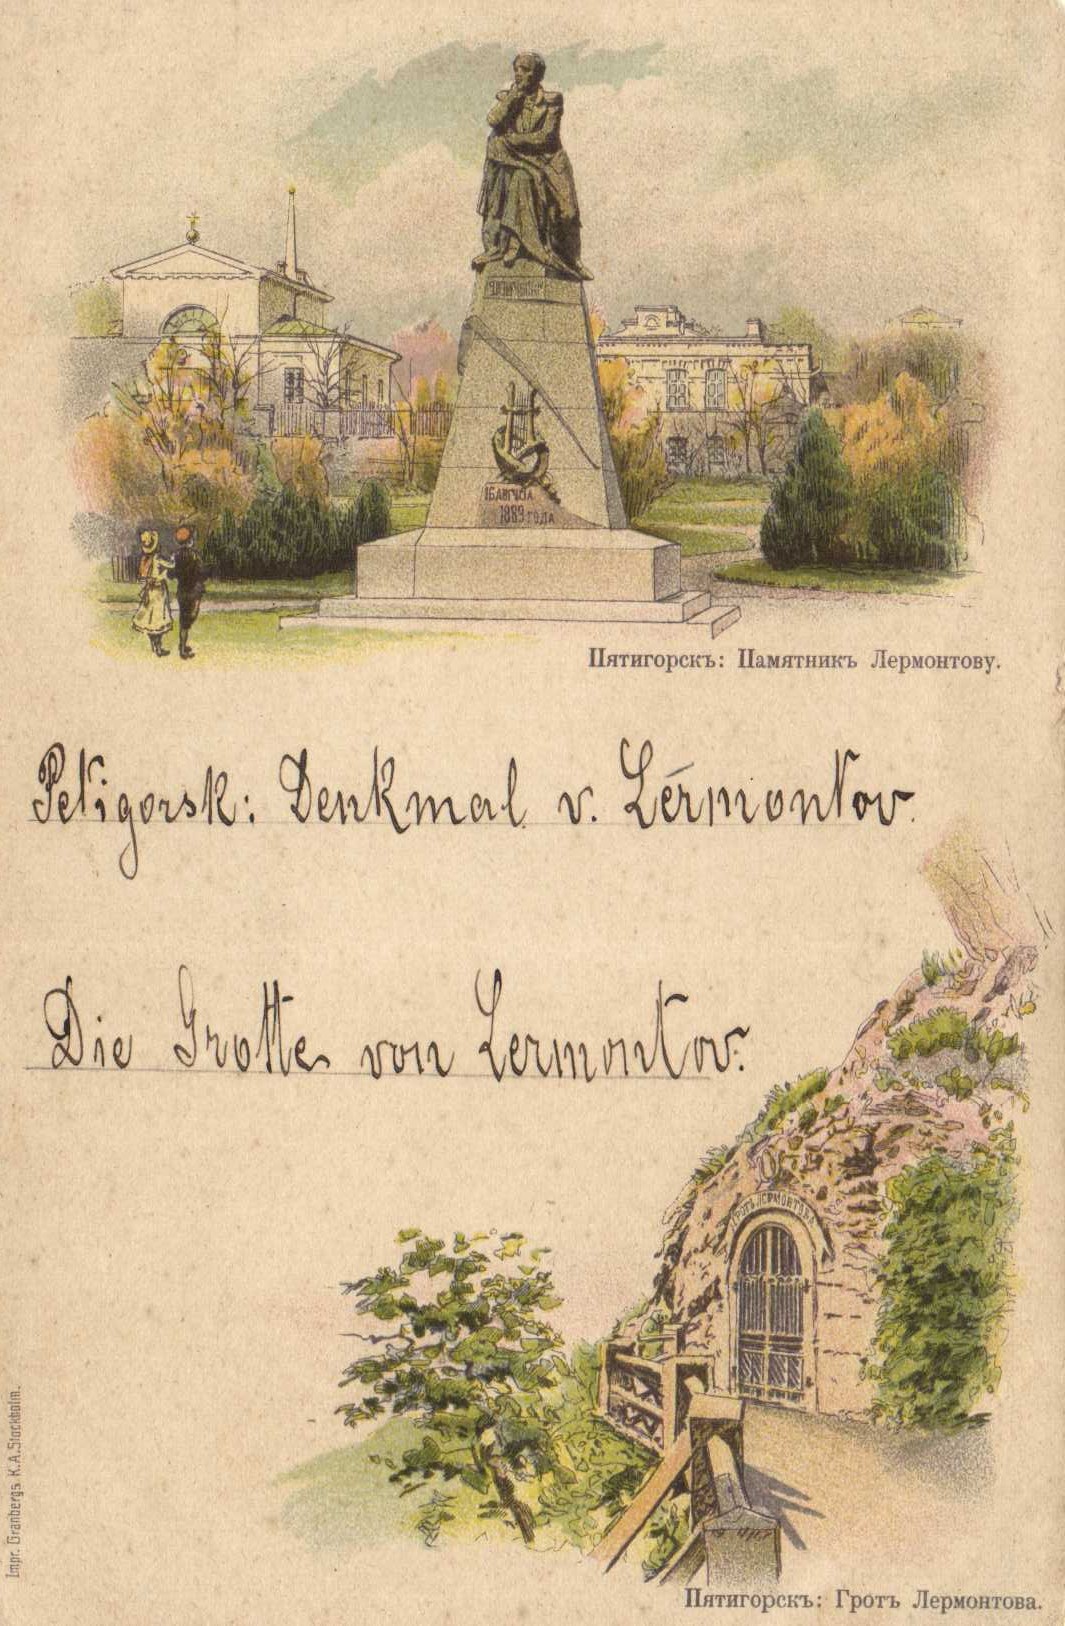 ЛЕРМОНТОВУ
16 АВГУСТА
1889 ГОДА
Пятигорскъ: Памятникъ Лермонтову.
Petigorsk: Denkmal v. Lérmontov.
Die Grotte von Lermontov.
ГРОТЪ ЛЕРМОНТОВА
Impr. Granbergs K.A. Stockholm.
Пятигорскъ: Гротъ Лермонтова.